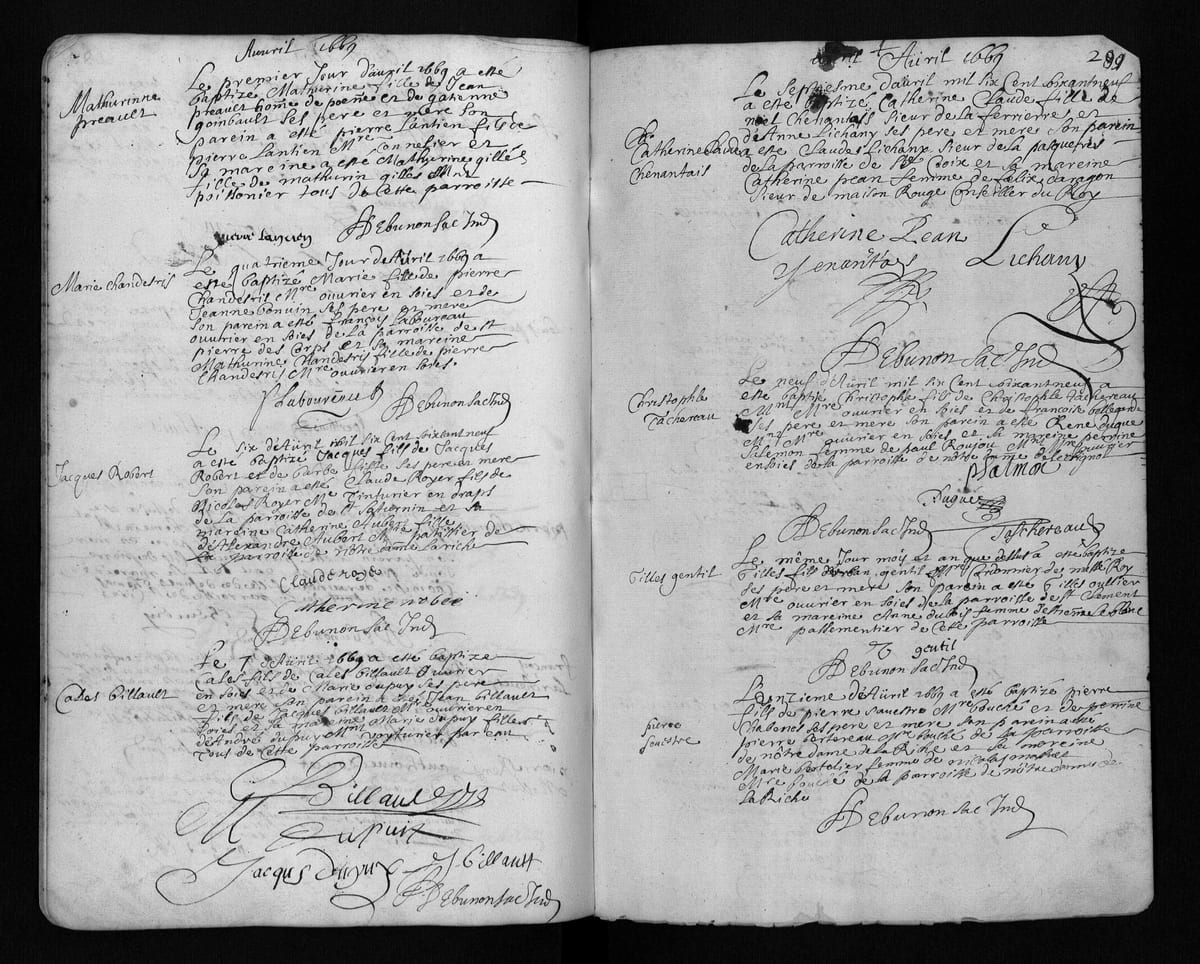 Avvril 1669
Mathurinne
preault
Le premier Jour d'auril 1669 a esté
baptizé Mathurine fille de Jean
preault home de poene et de gatienne
goinbault ses pere et mere son
parein a esté pierre Lantien fils de
pierre Lantien Mre
sa mareine a esté Mathurine gillé
fille de mathurin gillés Mnt
poissonier tous de Cette parroisse
Debunon Sac Ind
Marie Chandesris
Le quatrieme Jour de Avril 1669 a
esté baptizé Marie fille de pierre
Chandesris Mre ouvrier en soies et de
Jeanne bonvin ses pere et mere
son parein a esté françois Laboureau
ouvrier en soies de La parroisse de st
pierre des Corps et sa mareine
Mathurine Chandesris fille de pierre
Chandesris Mre ouvrier en soies
Debunon Sac Ind
Jacques Robert
Le six de Auril mil six Cent soixantneuf
a esté baptizé Jacques fils de Jacques
Robert et de barbe ses pere et mere
son parein a esté Claude Royer fils de
Nicolas Royer Mre Tinturier en draps
de La parroisse de st Saturnin et sa
mareine Catherine Aubert fille
de Alexandre Aubert Mre patissier de
La parroisse de nôtre dame La riche
Claude roger
Catherine
Debunon Sac Ind
Cales Gillault
Le 7 de Auril 1669 a esté baptizé
Cales fils de Cales Gillault ouvrier
en soies et de Marie dupuy ses pere
et mere son parein a esté Jean Gillault
fils de Jacques Gillault Mre ouvrier en
soies et sa mareine Marie dupuy fille
de André dupuy Mnt voyturier par eau
Tous de Cette parroisse
Gillault
M dupuis
Jacques dupuy J Gillault
Debunon Sac Ind
Auril 1669
289
Catherine Claude
Chenantais
Le septiesme d'auril mil six Cent soixantneuf
a esté baptizé Catherine Claude fille de
noel Chenantais sieur de la ferriere et
de Anne Lichany ses pere et mere son parein
a esté Claude Lichany sieur de la pasqueres
de la parroisse de ste Croix et sa mareine
Catherine pean femme de felix daragon
sieur de maison Rouge Conseiller du Roy
Catherine Pean
Lichany
Debunon Sac Ind
Christophle
Tachereau
Le neuf de Auril mil six Cent soixantneuf a
esté baptizé Christophe fils de Christophle Tachereau
Mnt Mre ouvrier en soies et de françoise bellegarde
ses pere et mere son parein a esté René dugue
Mnt Mre ouvrier en soies et sa mareine perrine
salemon femme de paul
en soies de la parroisse de nôtre dame
Dugue
Debunon Sac Ind
Taschereau
Gilles gentil
Le même Jour mois et an que dessus a esté baptizé
Gilles fils gentil Mre
ses pere et mere son parein a esté Gilles
Mre ouvrier en soies de la parroisse de st Clement
et sa mareine Anne femme de
Mre passementier de Cette parroisse
gentil
Debunon Sac Ind
pierre
sauestre
Le onzieme de Auril 1669 a esté baptizé pierre
fils de pierre sauestre Mre bouché et de perrine
Chabenes ses pere et mere son parein a esté
pierre bertereau Mre bouché de la parroisse
de nôtre dame de la Riche et sa mareine
Marie femme de nicolas
Mre bouché de la parroisse de nôtre dame de
La Riche
Debunon Sac Ind